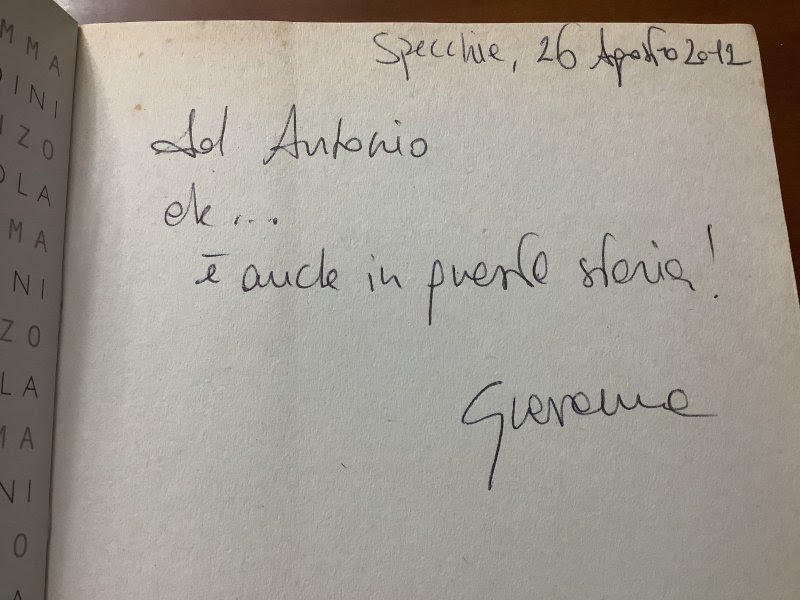 MMA
DINI
IZO
OLA
MA
NI
ZO
LA
MA
NI
O
A
Specchie, 26 Agosto 2012
Ad Antonio
che ...
è anche in queste storia!